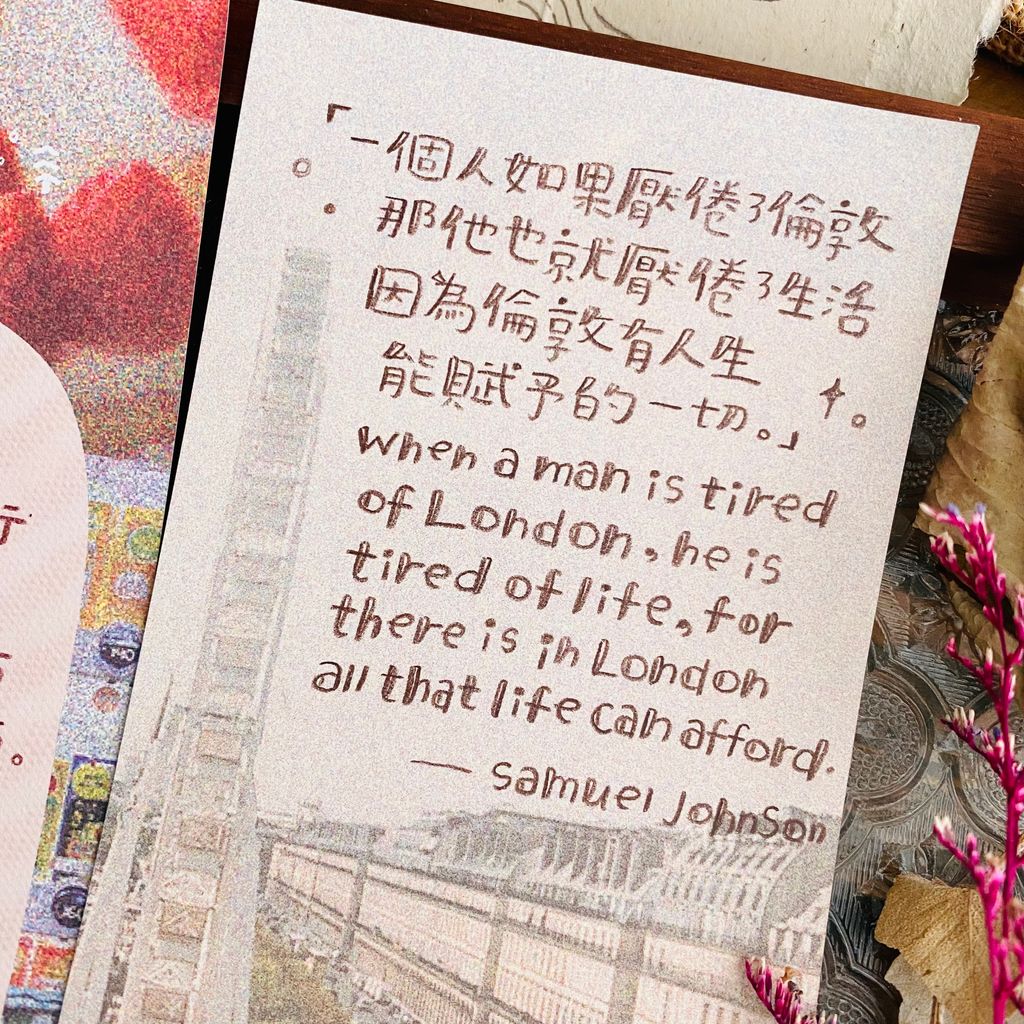 「一個人如果厭倦了倫敦
那他也就厭倦了生活
因為倫敦有人生
能賦予的一切。」
when a man is tired
of London, he is
tired of life, for
there is in London
all that life can afford.
— Samuel Johnson